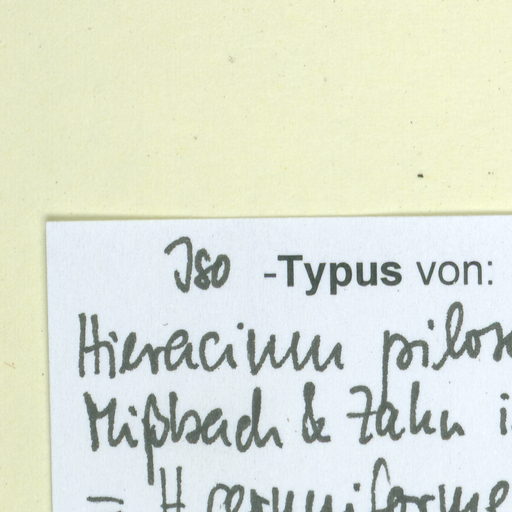 Iso -Typus von:
Hieracium pilos
Mißbach & Zahn i
= H.